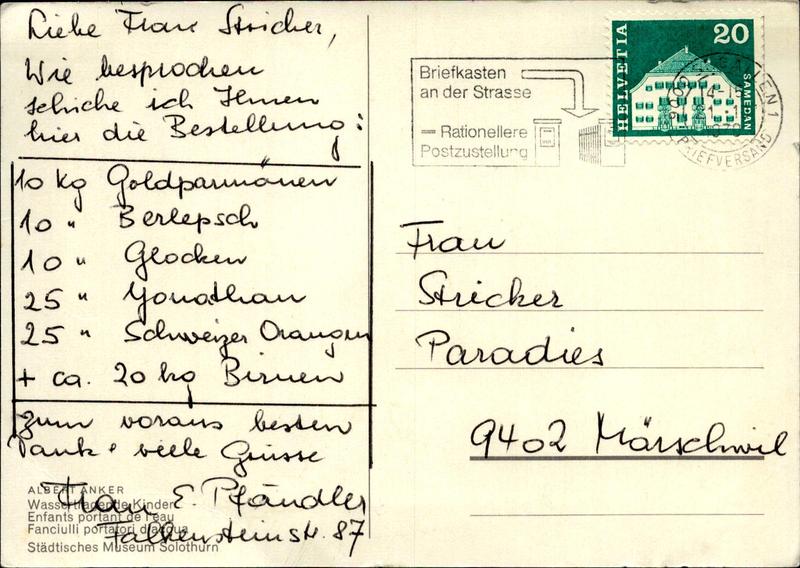 Liebe Frau Stricker,
Wie besprochen
schicke ich Ihnen
hier die Bestellung:
10 kg Goldparmänen
10 " Berlepsch
10 " Glocken
25 " Yonathan
25 " Schweizer Orangen
+ ca. 20 kg Birnen
Zum voraus besten
Dank + viele Grüsse
Frau E. Pfändler
Falkensteinstr. 87
ALBERT ANKER
Wassertragende Kinder
Enfants portant de l'eau
Fanciulli portatori d'acqua
Städtisches Museum Solothurn
Briefkasten
an der Strasse
— Rationellere
Postzustellung
HELVETIA
20
SAMEDAN
GALLEN 1
BRIEFVERSAND
Frau
Stricker
Paradies
9402 Mörschwil